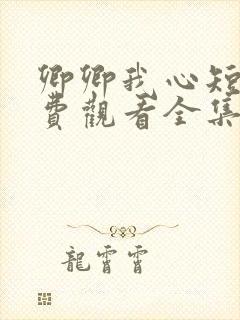 卿卿我心短
費觀看全集
龍霄霄